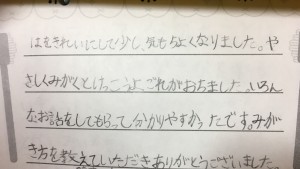 はをきれいにして少し、気もちよくなりました。や
さしくみがくとけっこうよごれがおちました。いろん
なお話をしてもらって分かりやすかったです。みが
き方を教えていただきありがとうございました。